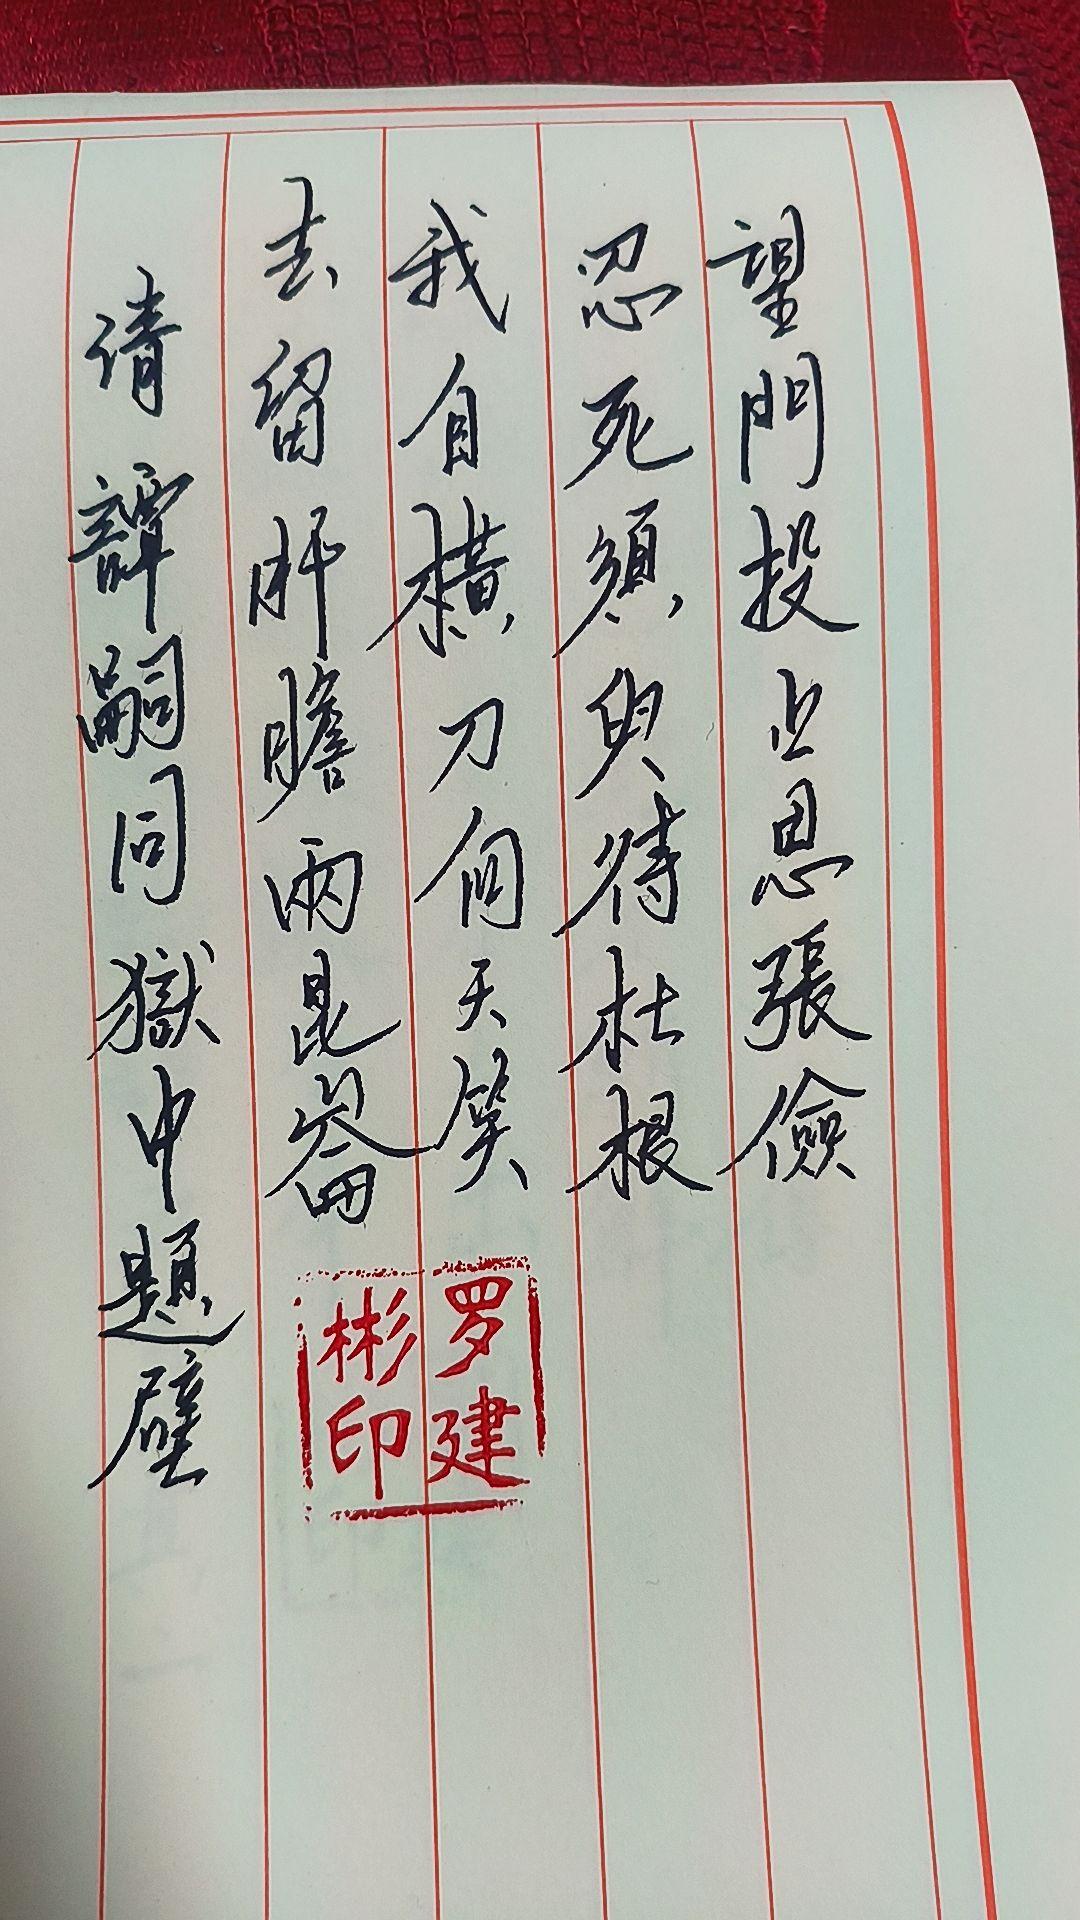 望門投止思張儉
忍死須臾待杜根
我自橫刀向天笑
去留肝膽兩崑崙
清譚嗣同獄中題壁
罗建彬印